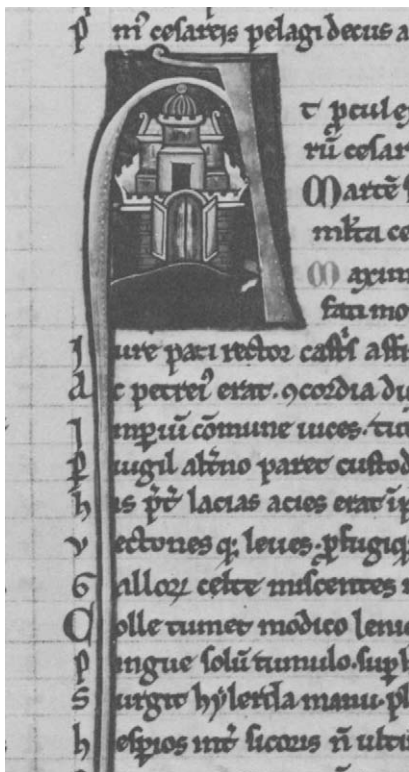 P mꝰ cesareis pelagi decus a
A
t pcul ex
rū cesar
Martē s
mlta ce
Maxim
fati mo
Iure pari rector castͥs affr
Ac petreiꝰ erat. ꝯcordia du
Impiū cōmune uices. tut
Puigil altno paret custod
his pt lacias acies erat īp
vectones q; leues. pfugiq
Galloꝝ celte miscentes n
Colle tumet modico leniq
pingue solū tumulo. sup h
Surgit hylerda manu. pl
hespios int sicoris n̄ ulti